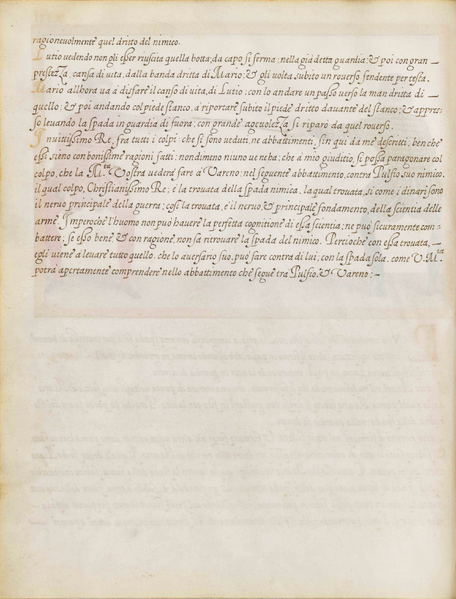 ragioneuolmente quel dritto del nimico.
Lutio vedendo non gli esser riuscita quella botta; da capo si ferma; nella già detta guardia; & poi con gran
prestezza, cansa di vita, dalla banda dritta di Mario; & gli volta subito un rouerso fendente per testa.
Mario allhora ua a disfare il canso di vita, di Lutio; con lo andare un passo verso la man dritta di
quello; & poi andando col piede stanco, a riportare subito il piede dritto dauante del stanco; & appres-
so leuando la spada in guardia di fuora; con grande ageuolezza si riparò da quel rouerso.
Inuittissimo Re, fra tutti i colpi; che si sono veduti, ne abbattimenti, fin qui da me descritti, ben che
essi sieno con bonissime ragioni fatti: nondimeno niuno ue n'ha; che a mio giuditio, si possa paragonare col
colpo, che la M.ta Vostra vederà fare a Vareno; nel seguente abbattimento, contra Pulfio suo nimico:
il qual colpo, Christianissimo Re; è la trouata della spada nimica, la qual trouata, si come i dinari sono
il neruo principale della guerra; così la trouata, è il neruo, & principale fondamento, della scientia delle
arme. Imperoche l'huomo non può hauere la perfetta cognitione di essa scientia; ne può sicuramente com-
battere; se esso bene & con ragione non sa ritrouare la spada del nimico. Percioche con essa trouata,
egli uiene a leuare tutto quello, che lo auersario suo, può fare contra di lui; con la spada sola, come V. M.ta
potrà apertamente comprendere nello abbattimento che segue tra Pulfio, & Vareno;